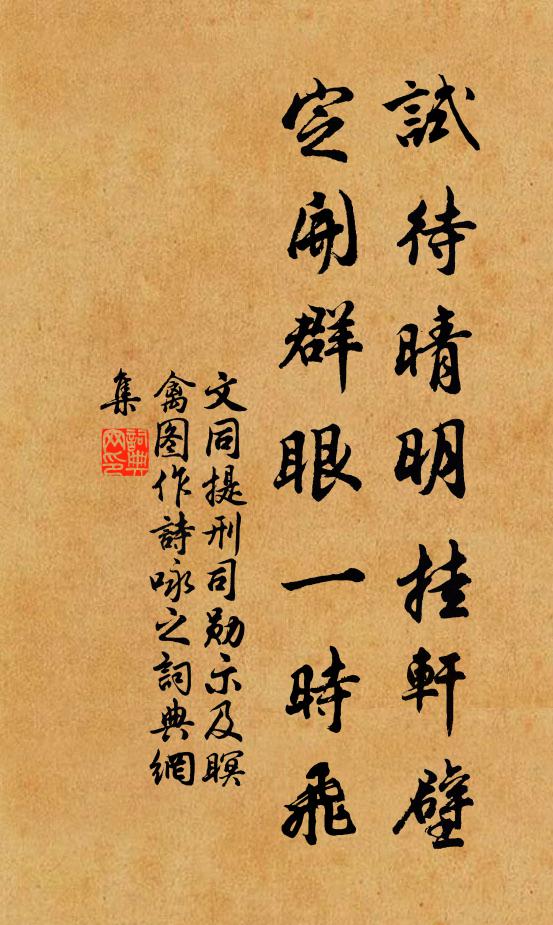 試待晴明挂軒壁
定開群眼一時飛
文同提刑司勛示及暝
禽图作詩咏之詞典網
集
詞典
网印